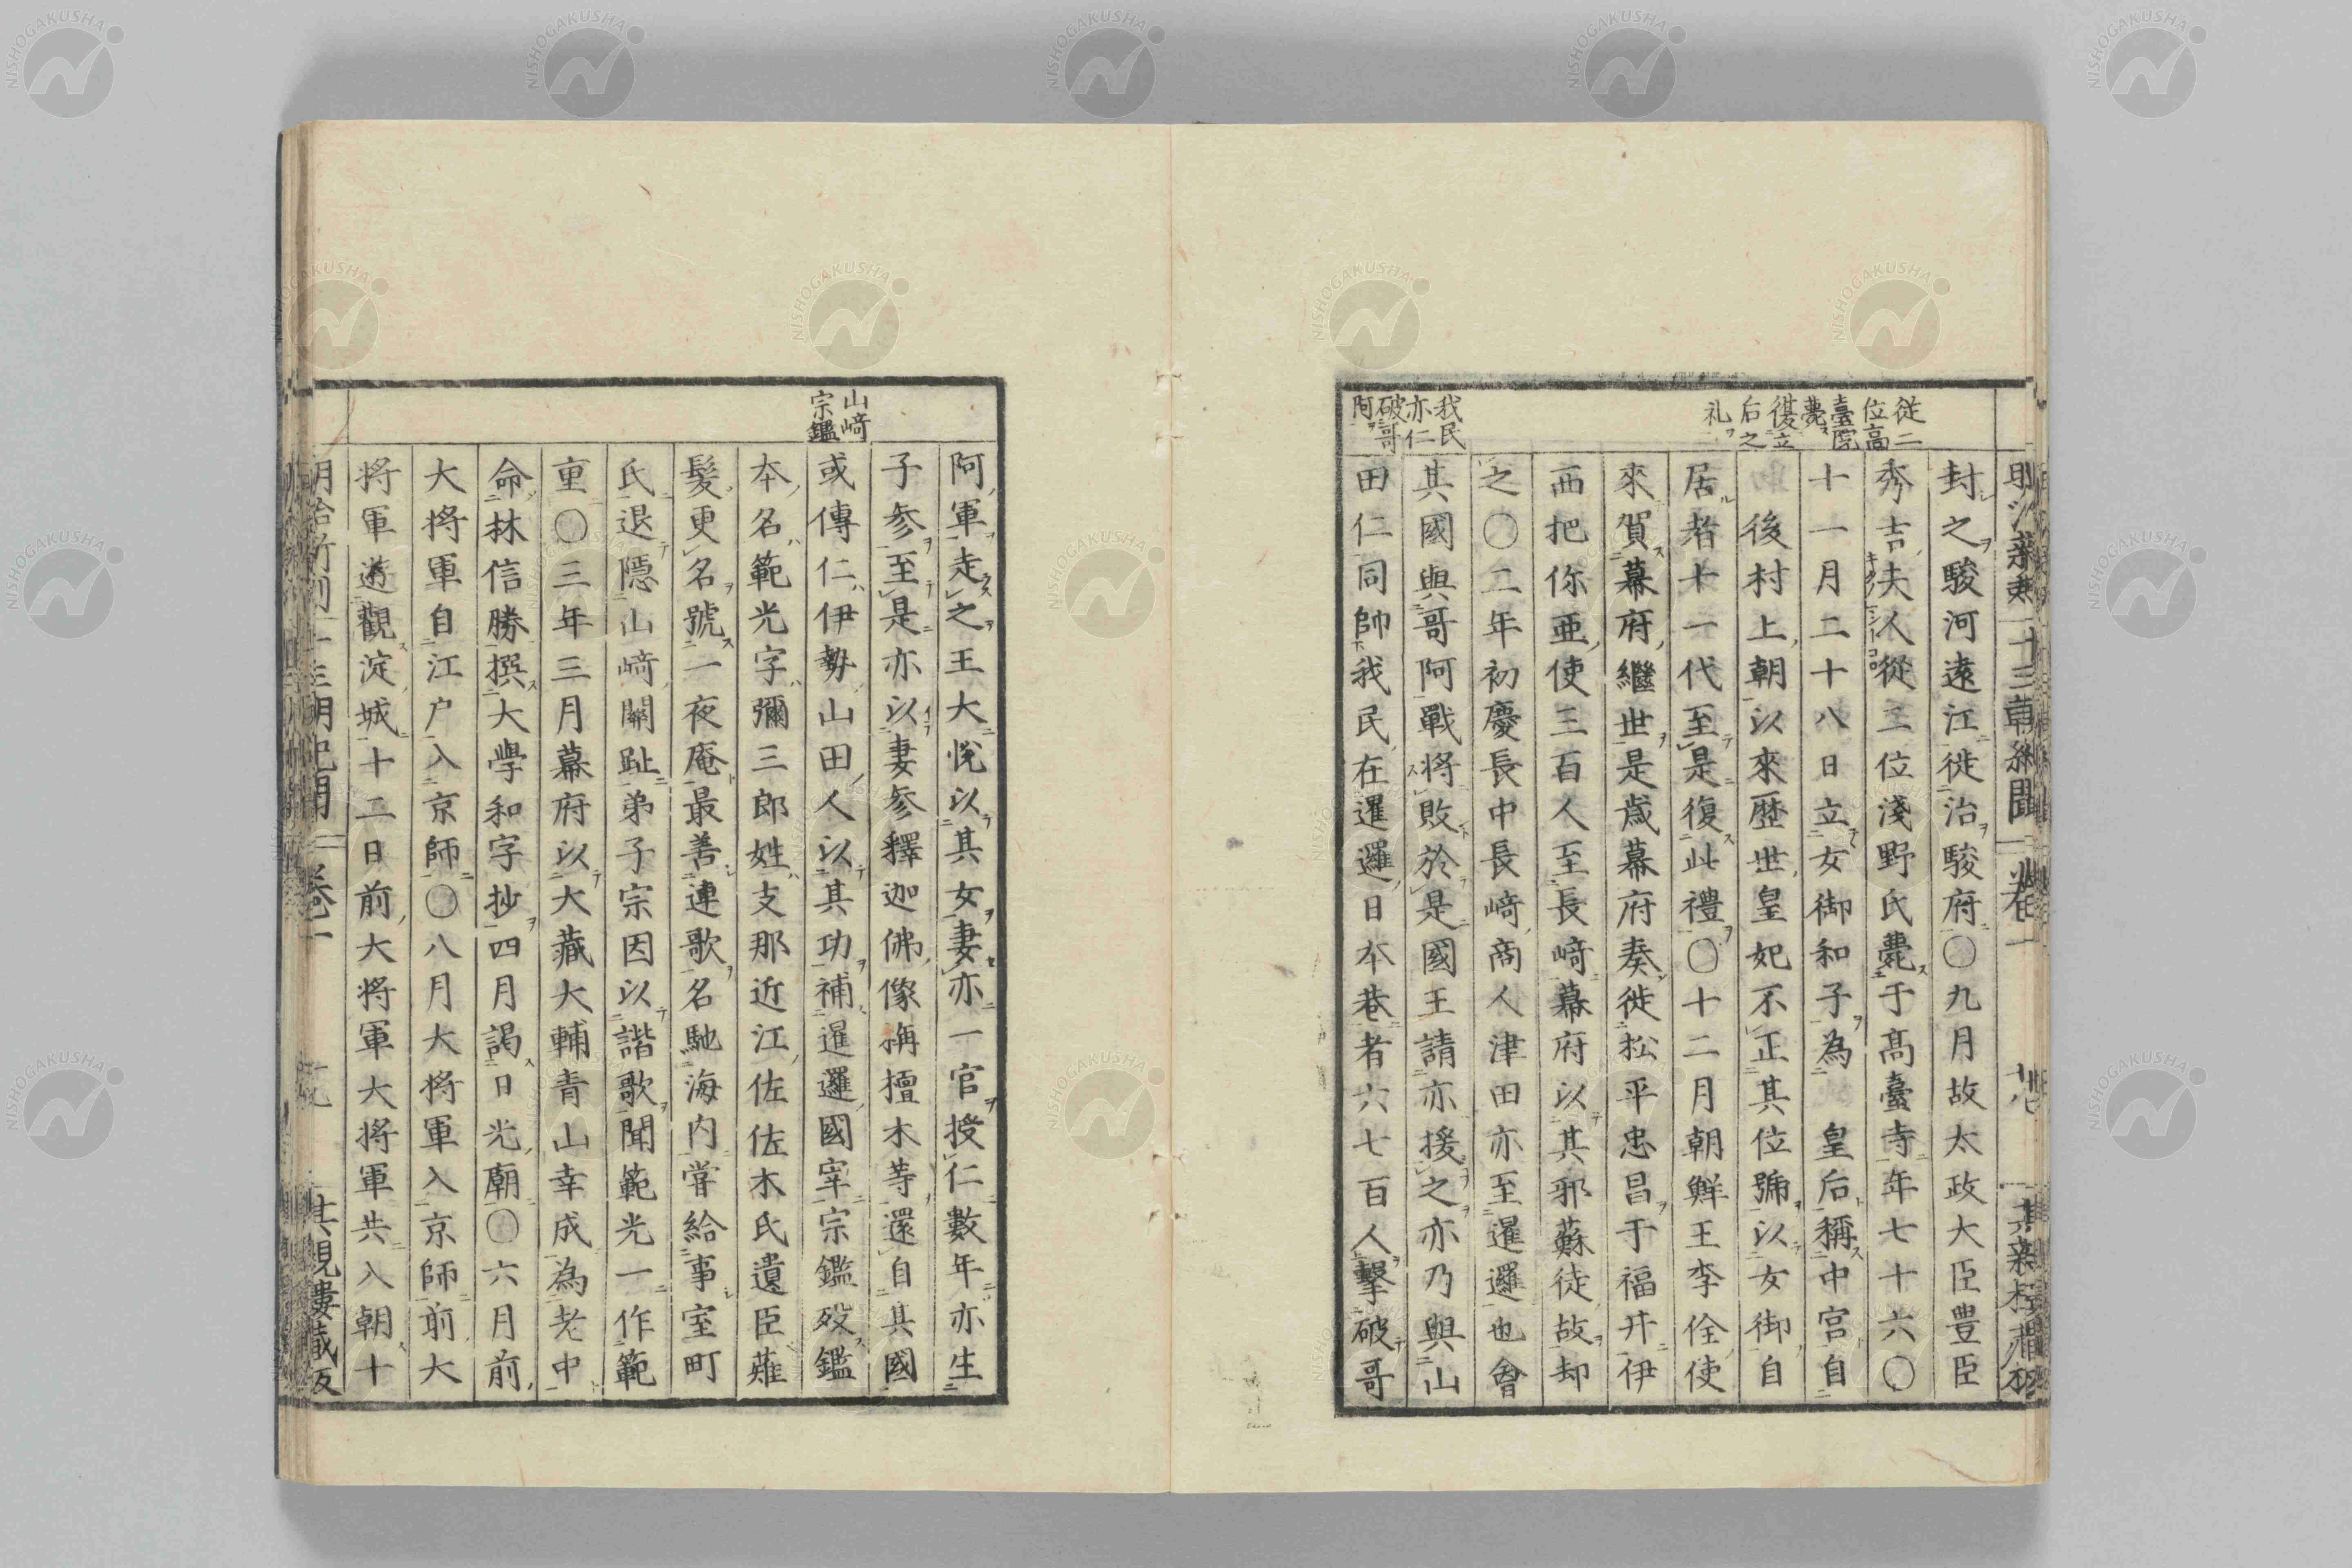 從二
位高
臺院
薨
復立
后之
礼
我民
亦仁
破哥
阿
封之駿河遠江徙治駿府〇九月故太政大臣豊臣
秀吉夫人從二位淺野氏薨于高臺寺年七十六〇
十一月二十八日立女御和子為 皇后稱中宮自
後村上朝以來歷世皇妃不正其位號以女御自
居者十一代至是復此禮〇十二月朝鮮王李佺使
來賀幕府繼世是歳幕府奏徙松平忠昌于福井伊
西把你亜使三百人至長﨑幕府以其邪蘇徒故却
之〇二年初慶長中長﨑商人津田亦至暹邏也會
其國與哥阿戰将敗於是國王請亦援之亦乃與山
田仁同帥我民在暹邏日本巷者六七百人擊破哥
山﨑
宗鑑
阿軍走之王大悅以其女妻亦一官授仁數年亦生
子参至是亦以妻参釋迦佛像栴檀木等還自其國
或傳仁伊勢山田人以其功補暹邏國宰宗鑑歿鑑
本名範光字彌三郎姓支那近江佐佐木氏遺臣薙
髮更名號一夜庵最善連歌名馳海内嘗給事室町
氏退隱山﨑關趾弟子宗因以諧歌聞範光一作範
重〇三年三月幕府以大藏大輔青山幸成為老中
命林信勝撰大學和字抄四月謁日光廟〇六月前
大将軍自江户入京師〇八月大将軍入京師前大
将軍遊觀淀城十二日前大将軍大将軍共入朝十